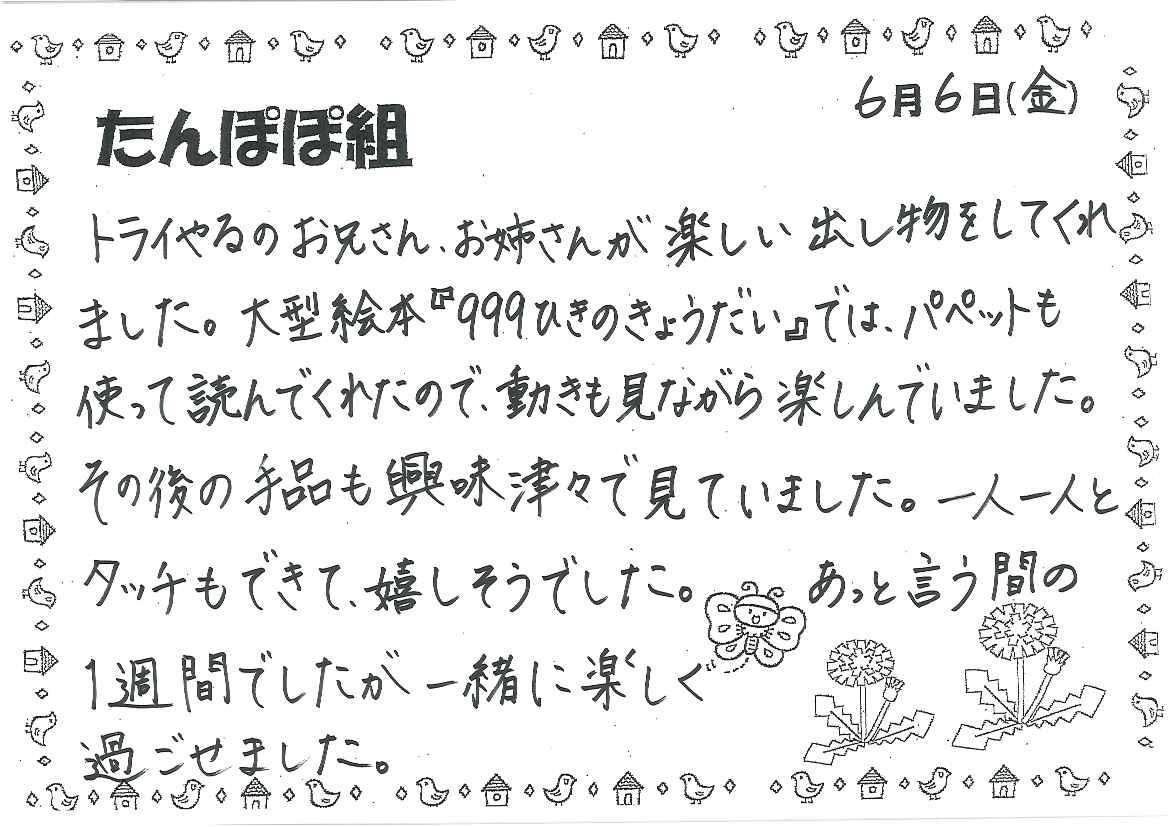 6月6日(金)
たんぽぽ組
トライやるのお兄さん、お姉さんが楽しい出し物をしてくれ
ました。大型絵本『999ひきのきょうだい』では、パペットも
使って読んでくれたので、動きも見ながら楽しんでいました。
その後の手品も興味津々で見ていました。一人一人と
タッチもできて、嬉しそうでした。 あっと言う間の
1週間でしたが一緒に楽しく
過ごせました。